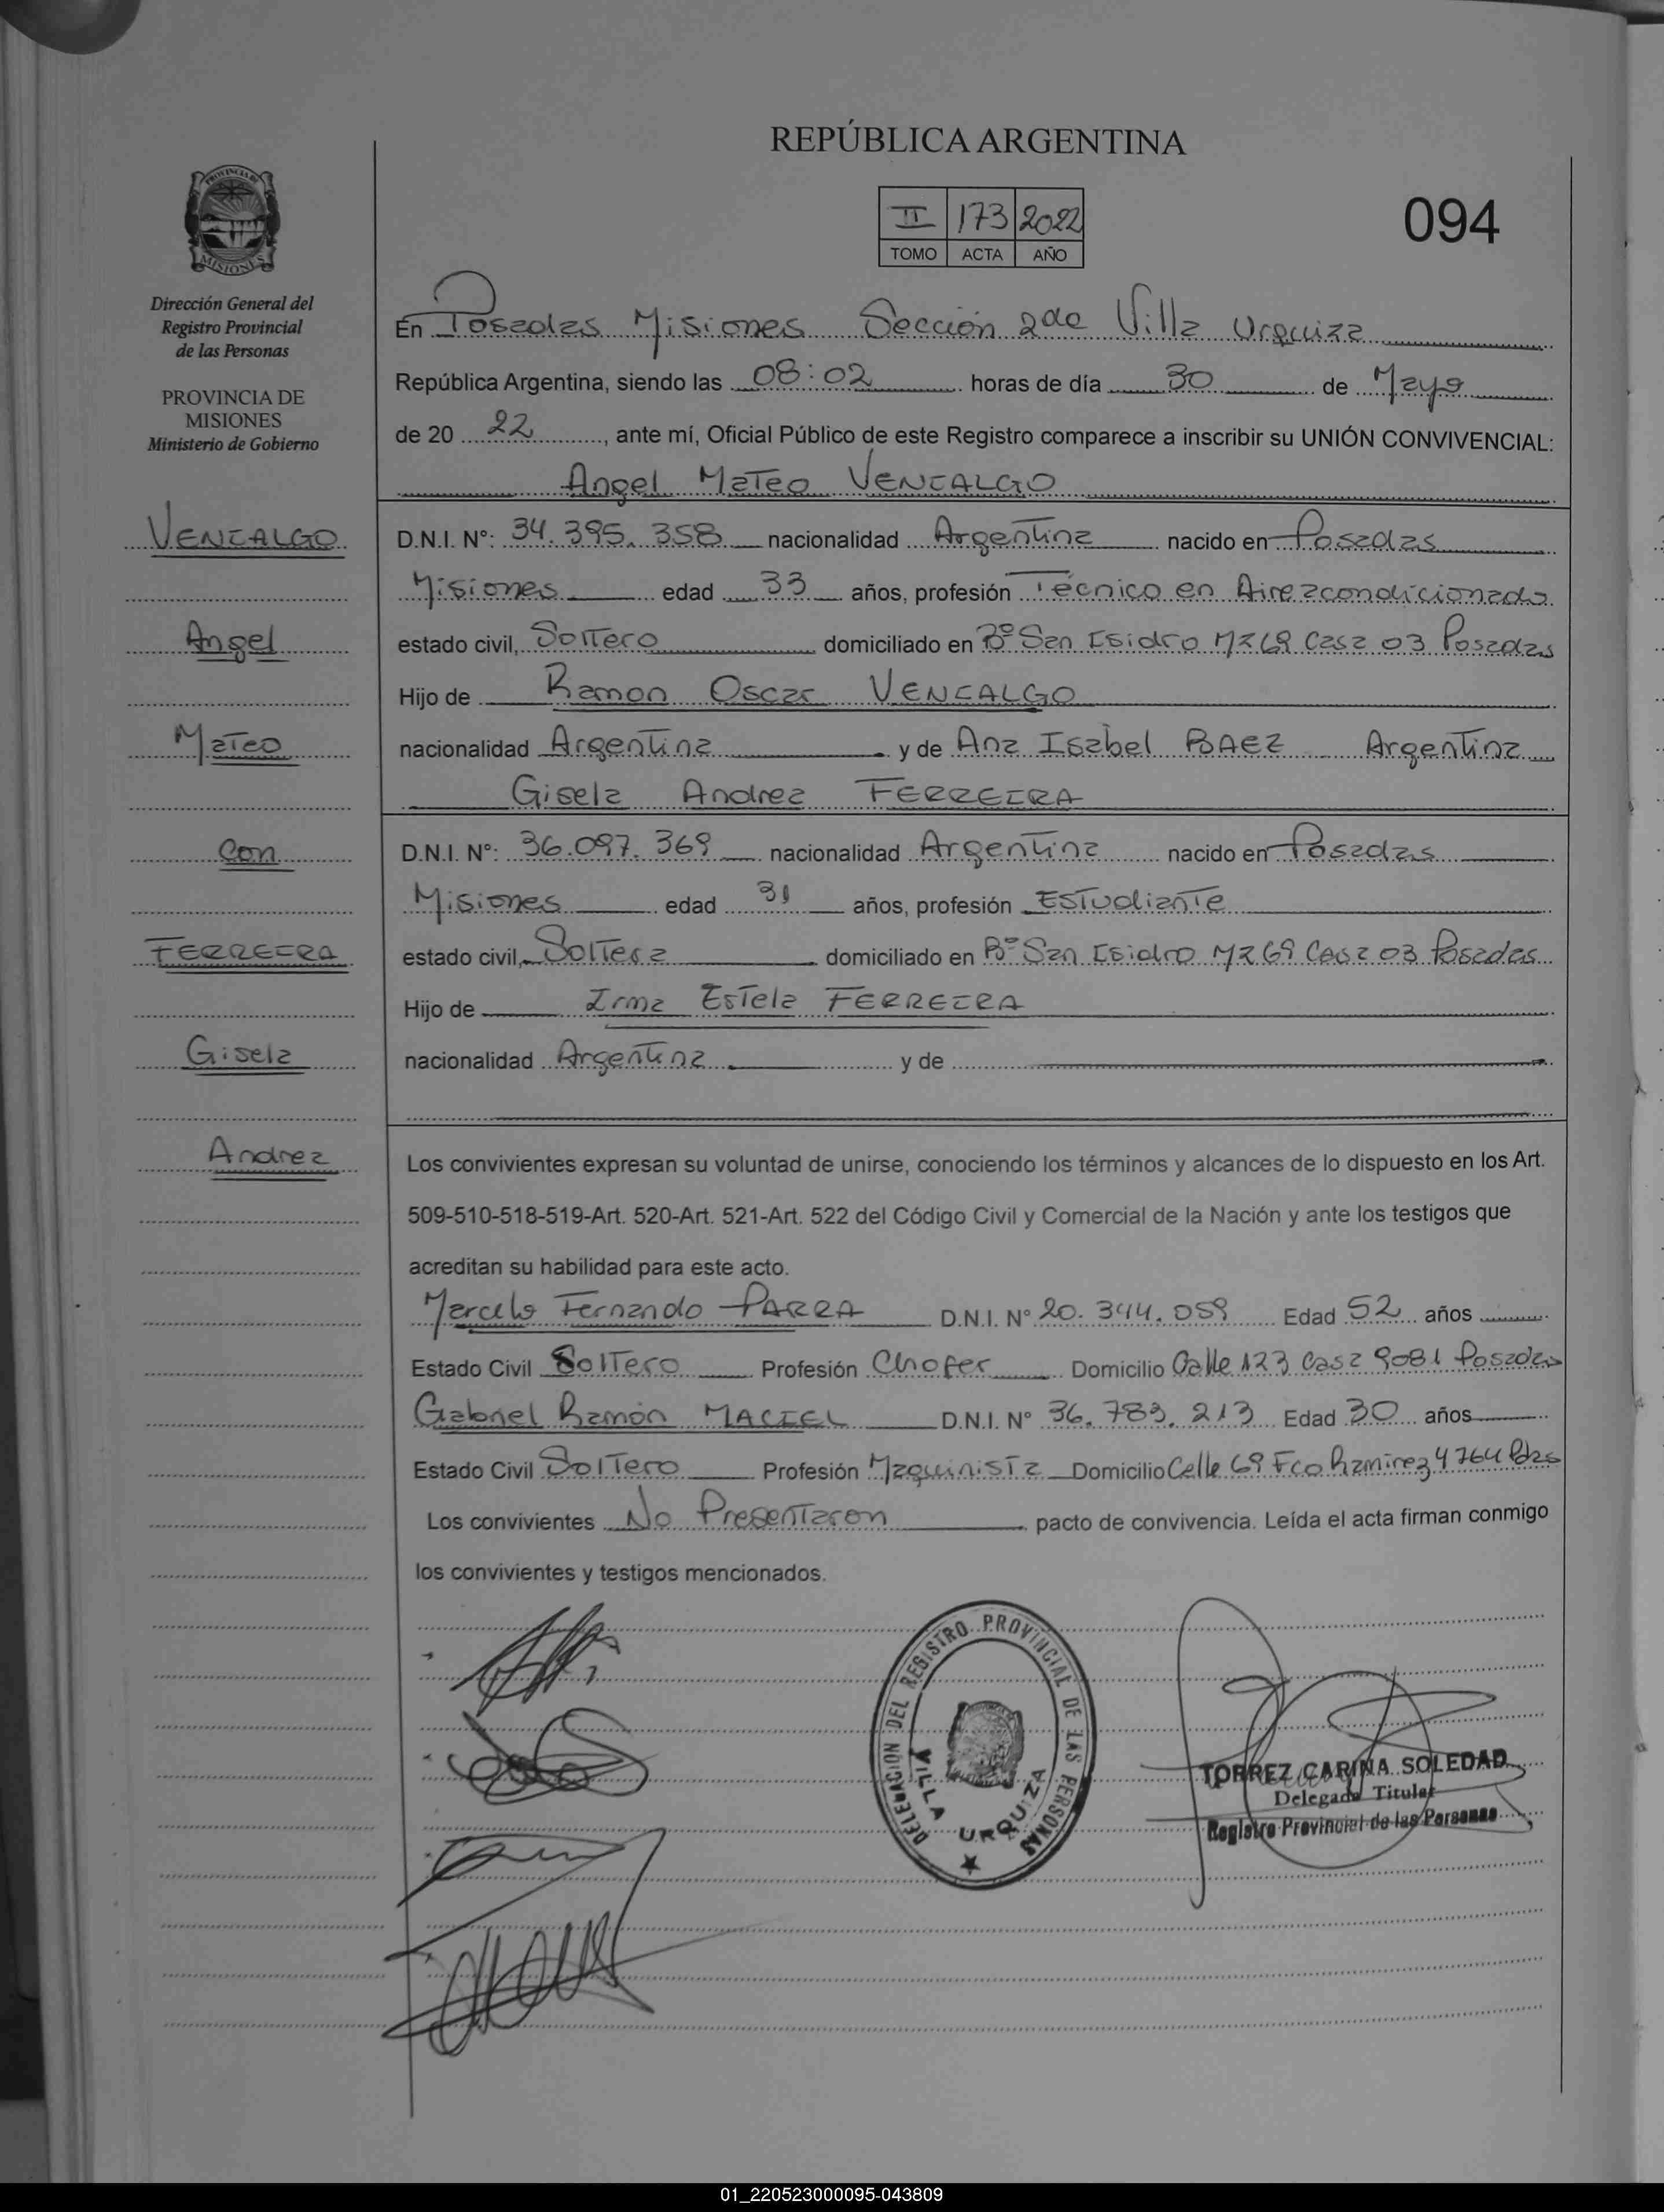 REPÚBLICA ARGENTINA
II 173 2022
TOMO ACTA AÑO
094
PROVINCIA DE
MISIONES
Dirección General del
Registro Provincial
de las Personas
PROVINCIA DE
MISIONES
Ministerio de Gobierno
VENIALGO
Angel
Mateo
Con
FERREIRA
Gisela
Andrea
En Posadas Misiones Sección 2da Villa Urquiza
República Argentina, siendo las 08:02 horas de día 30 de Mayo
de 20 22, ante mí, Oficial Público de este Registro comparece a inscribir su UNIÓN CONVIVENCIAL:
Angel Mateo VENIALGO
D.N.I. Nº: 34.395.358 nacionalidad Argentina nacido en Posadas
Misiones edad 33 años, profesión Técnico en Aire acondicionado
estado civil, Soltero domiciliado en Bº San Isidro Mz 69 Casa 03 Posadas
Hijo de Ramon Oscar VENIALGO
nacionalidad Argentina y de Ana Isabel BAEZ Argentina
Gisela Andrea FERREIRA
D.N.I. Nº: 36.097.369 nacionalidad Argentina nacido en Posadas
Misiones edad 31 años, profesión Estudiante
estado civil, Soltera domiciliado en Bº San Isidro Mz 69 Casa 03 Posadas
Hijo de Irma Estela FERREIRA
nacionalidad Argentina y de
Los convivientes expresan su voluntad de unirse, conociendo los términos y alcances de lo dispuesto en los Art.
509-510-518-519-Art. 520-Art. 521-Art. 522 del Código Civil y Comercial de la Nación y ante los testigos que
acreditan su habilidad para este acto.
Marcelo Fernando PARRA D.N.I. Nº 20.344.059 Edad 52 años
Estado Civil Soltero Profesión Chofer Domicilio Calle 123 Casa 9081 Posadas
Gabriel Ramón MACIEL D.N.I. Nº 36.783.213 Edad 30 años
Estado Civil Soltero Profesión Maquinista Domicilio Calle 69 Fco Ramirez 4764 Pdas
Los convivientes No Presentaron pacto de convivencia. Leída el acta firman conmigo
los convivientes y testigos mencionados.
DELEGACIÓN DEL REGISTRO PROVINCIAL DE LAS PERSONAS
VILLA URQUIZA
TORREZ CARINA SOLEDAD
Delegada Titular
Registro Provincial de las Personas
01_220523000095-043809